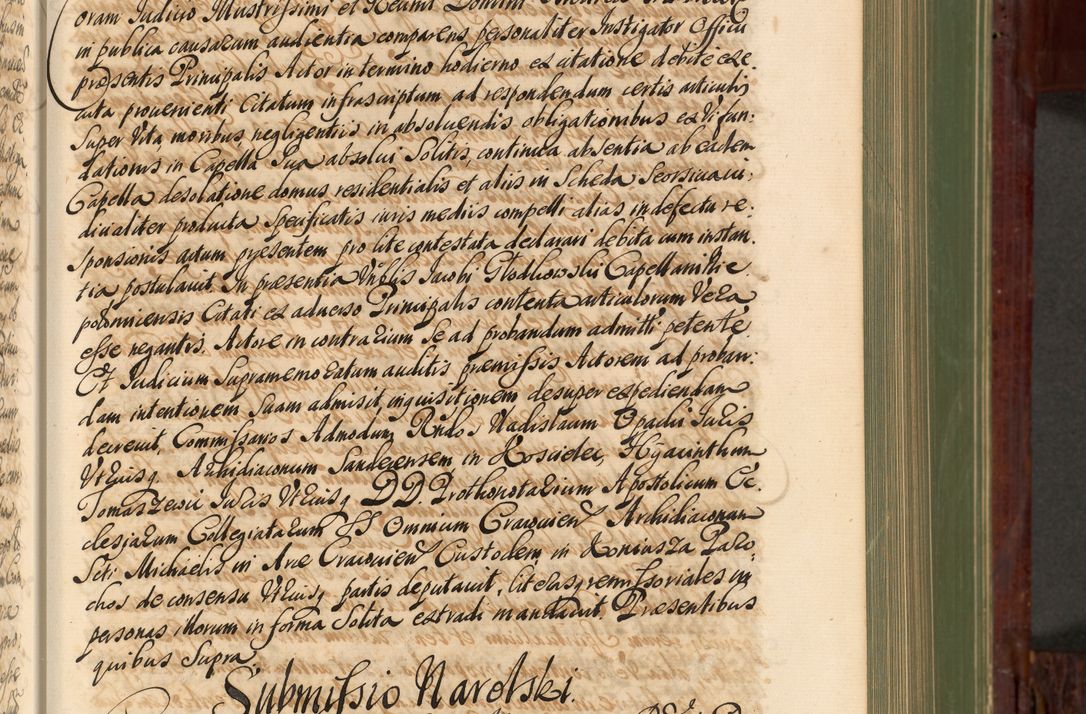 oram Judicio Illustrissimi et Rdmi Domini
in publica causarum audientia comparens personaliter Instigator Officii
præsentis Principalis Actor in termino hodierno ex citatione debite exe
cuta provenienti Citatum infrascriptum ad respondendum certis articulis
super vita, moribus, negligentiis in absolvendis obligationibus ex vi fun:
dationis in Capella sua absolvi solitis, continua absentia ab eadem
Capella desolatione domus residentialis et aliis in Scheda seorsiva iu:
dicialiter producta specificatis iuris mediis compelli alias in defectu re:
sponsionis actum præsentem pro lite contestata declarari debita cum instan
tia postulavit. In præsentia Vnblis Jacobi Głodkowski Capellani Nie
połomicensis Citati ex adverso Principalis contenta articulorum vera
esse negantis. Actore in contrarium se ad probandum admitti petente
Et Judicium supramemoratum auditis præmissis Actorem ad proban:
dam intentionem suam admisit inquisitionem desuper expediendam
decrevit, Commissarios Admodum Rndos Vladislaum Opacki Juris
Vtriusq Archidiaconum Sandecensem in Koscielec, Hyacinthum
Tomaszewic Juris Vtriusq D D. Prothonotarium Apostolicum Ec.
clesiarum Collegiatarum SS Omnium Cracovien Archidiaconum
Scti Michaelis in Arce Cracovien Custodem, in Koniusza Paro
chos de consensu Vtriusq partis deputavit, literasq remissoriales in
personas illorum in forma solita extradi mandavit. Præsentibus
quibus supra.
Submissio Narolski.